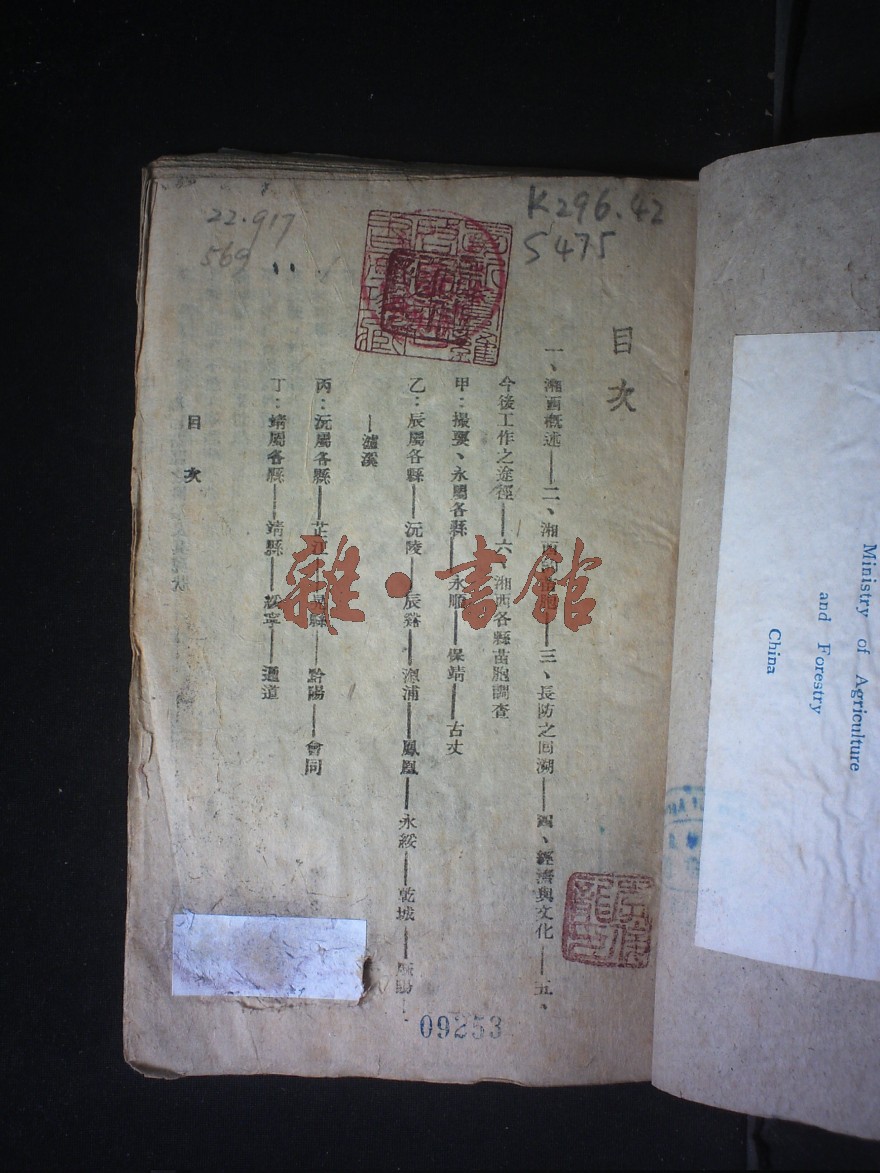 K296.42
S475
22.917
569
目次
一、湘西概述——二、湘西——三、長防之回溯——四、經濟與文化——五、
今後工作之途徑——六、湘西各縣苗胞調查
甲：撮要、永屬各縣——永順——保靖——古丈
乙：辰屬各縣——沅陵——辰谿——漵浦——鳳凰——永綏——乾城——
——瀘溪
丙：沅屬各縣——芷江——晃縣——黔陽——會同
丁：靖屬各縣——靖縣——綏寧——通道
目次
09253
雜·書館
Ministry of Agriculture
and Forestry
China